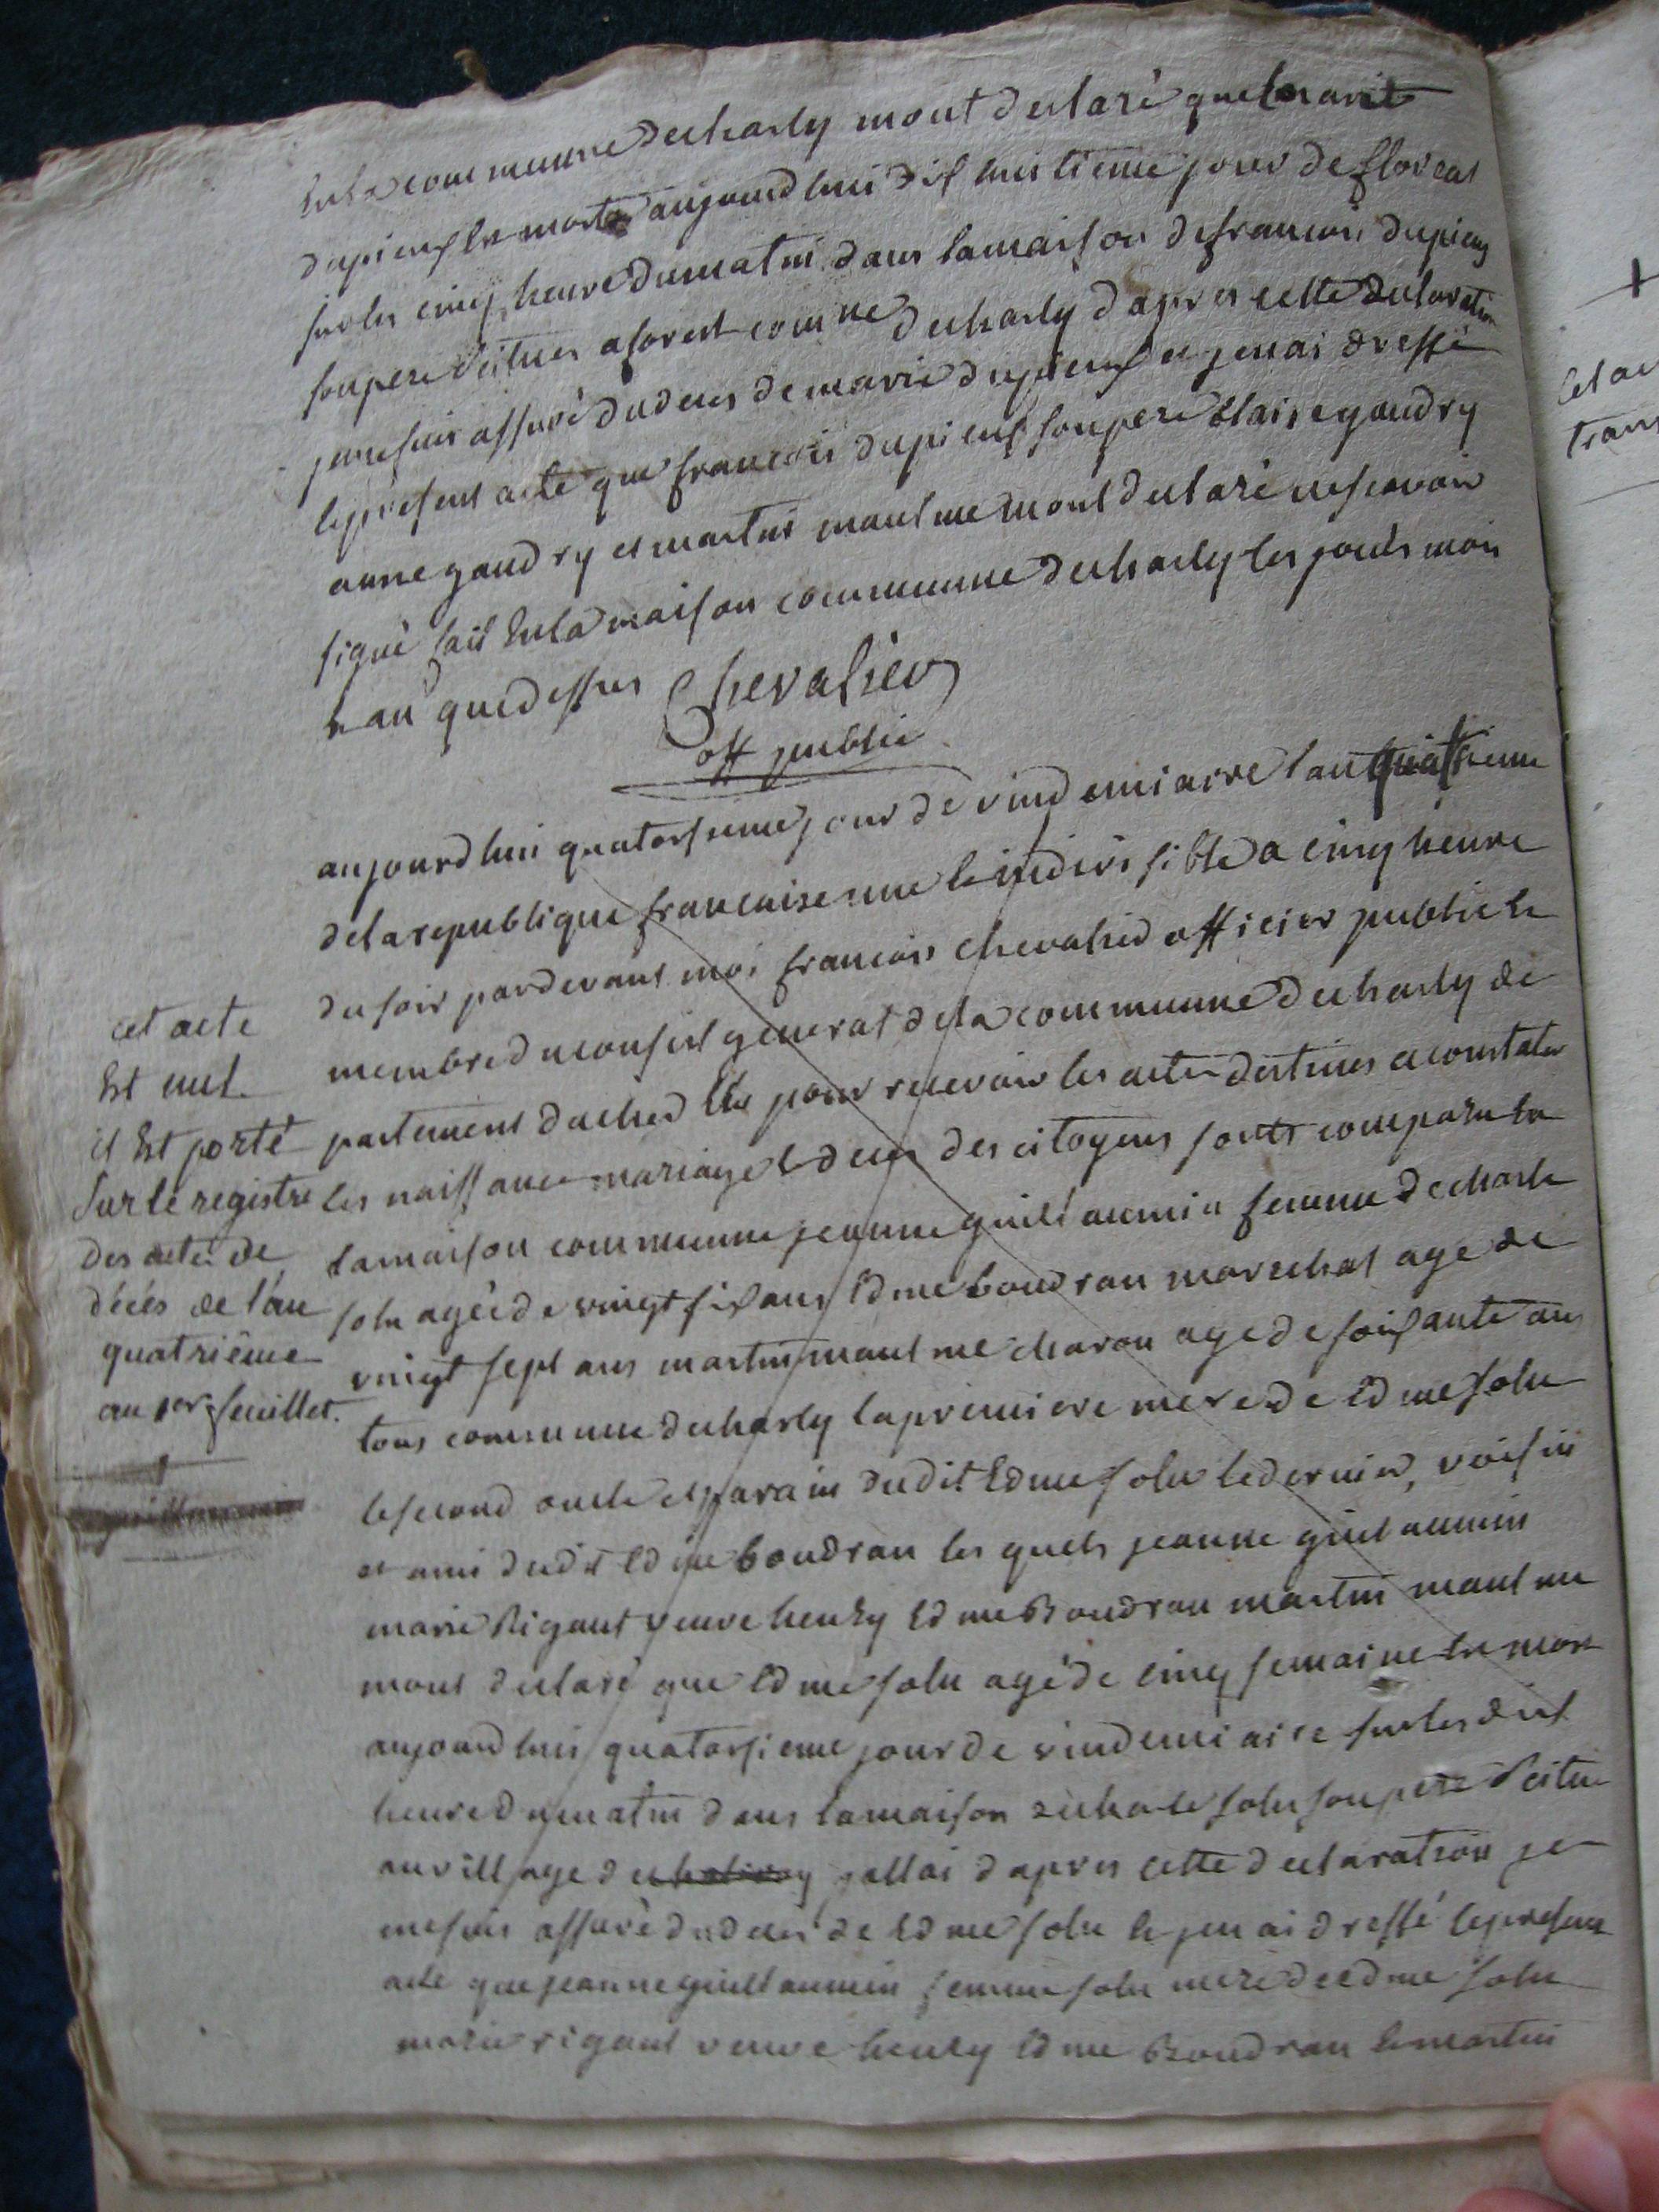 en la commune decharly mont declaré que marie
dupieuf est morte aujourdhui dix huitieme jour de floreal
sur les cinq heure dumatin dans lamaison de francois dupieuf
son pere scitués a forest comne decharly dapres cette declaration
jeme suis assuré dudeces de marie dupieuf et jenai dressé
le present acte que francois dupieuf son pere blaise gaudry
anne gaudry et martin maulme mont declaré ne scavoir
signé fait en la maison commune decharly les jours mois
et an que dessus Chevalier
off public
aujourdhui quatorsieme jour de vindemiaire l'an quatrieme
dela republique francaise une et indivisible a cinq heure
du soir pardevant moi francois chevalier officier public et
membre duconseil general dela commune decharly de
partement ducher élu pour recevoir les actes destinés a constater
les naissance mariage et deces des citoyens sonts comparu en
lamaison commune jeanne guillaumin femme decharle
solu agée de vingt six ans Edme boudran marechal age de
vingt sept ans martin maulme charon age de soixante ans
tous commune decharly lapremiere mere de Edme solu
lesecond oncle et parain dudit Edme solu ledernier, voisin
et ami dudit Edme boudran les quels jeanne guillaumin
marie Rigaut veuve henry Edme Boudran martin maulme
mont declaré que Edme solu agé de cinq semaine est mort
aujourdhui quatorsieme jour de vindemiaire sur les dix
heure dumatin dans lamaison decharle solu son pere scitue
au village de jallai dapres cette declaration je
mesuis assuré dudeces de Edme solu et jen ai dressé lepresent
acte que jeanne guillaumin femme solu mere de edme solu
marie rigaut veuve henry Edme Boudran et martin
cet acte
Est nul.
il Est porté
Sur le registre
des actes de
décés de l'an
quatrième
au 1er feuillet.
+
cet ac
trans